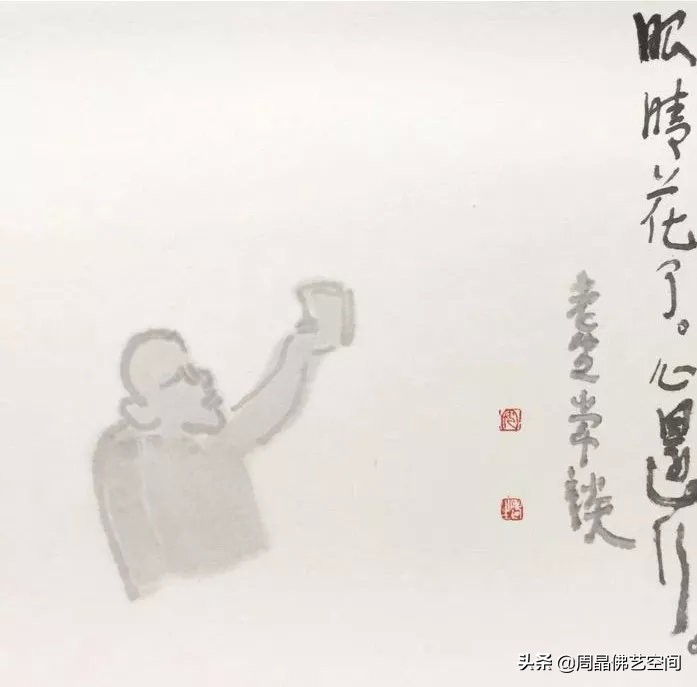 眼睛花了。心還行。
老生常談
头条 @周晶佛艺空间